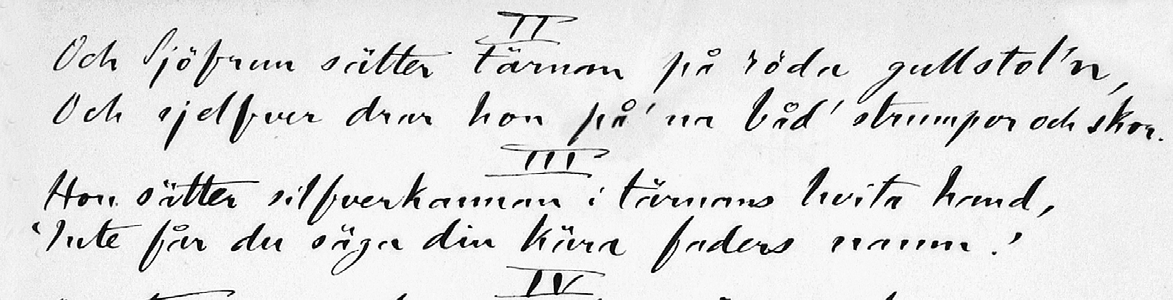 II
Och Sjöfrun sätter tärnan på röda gullstol'n,
Och sjelfver drar hon på' na båd' strumpor och skor.
III
Hon sätter silfverkannan i tärnans hvita hand,
"Inte får du säga din kära faders namn!"
IV